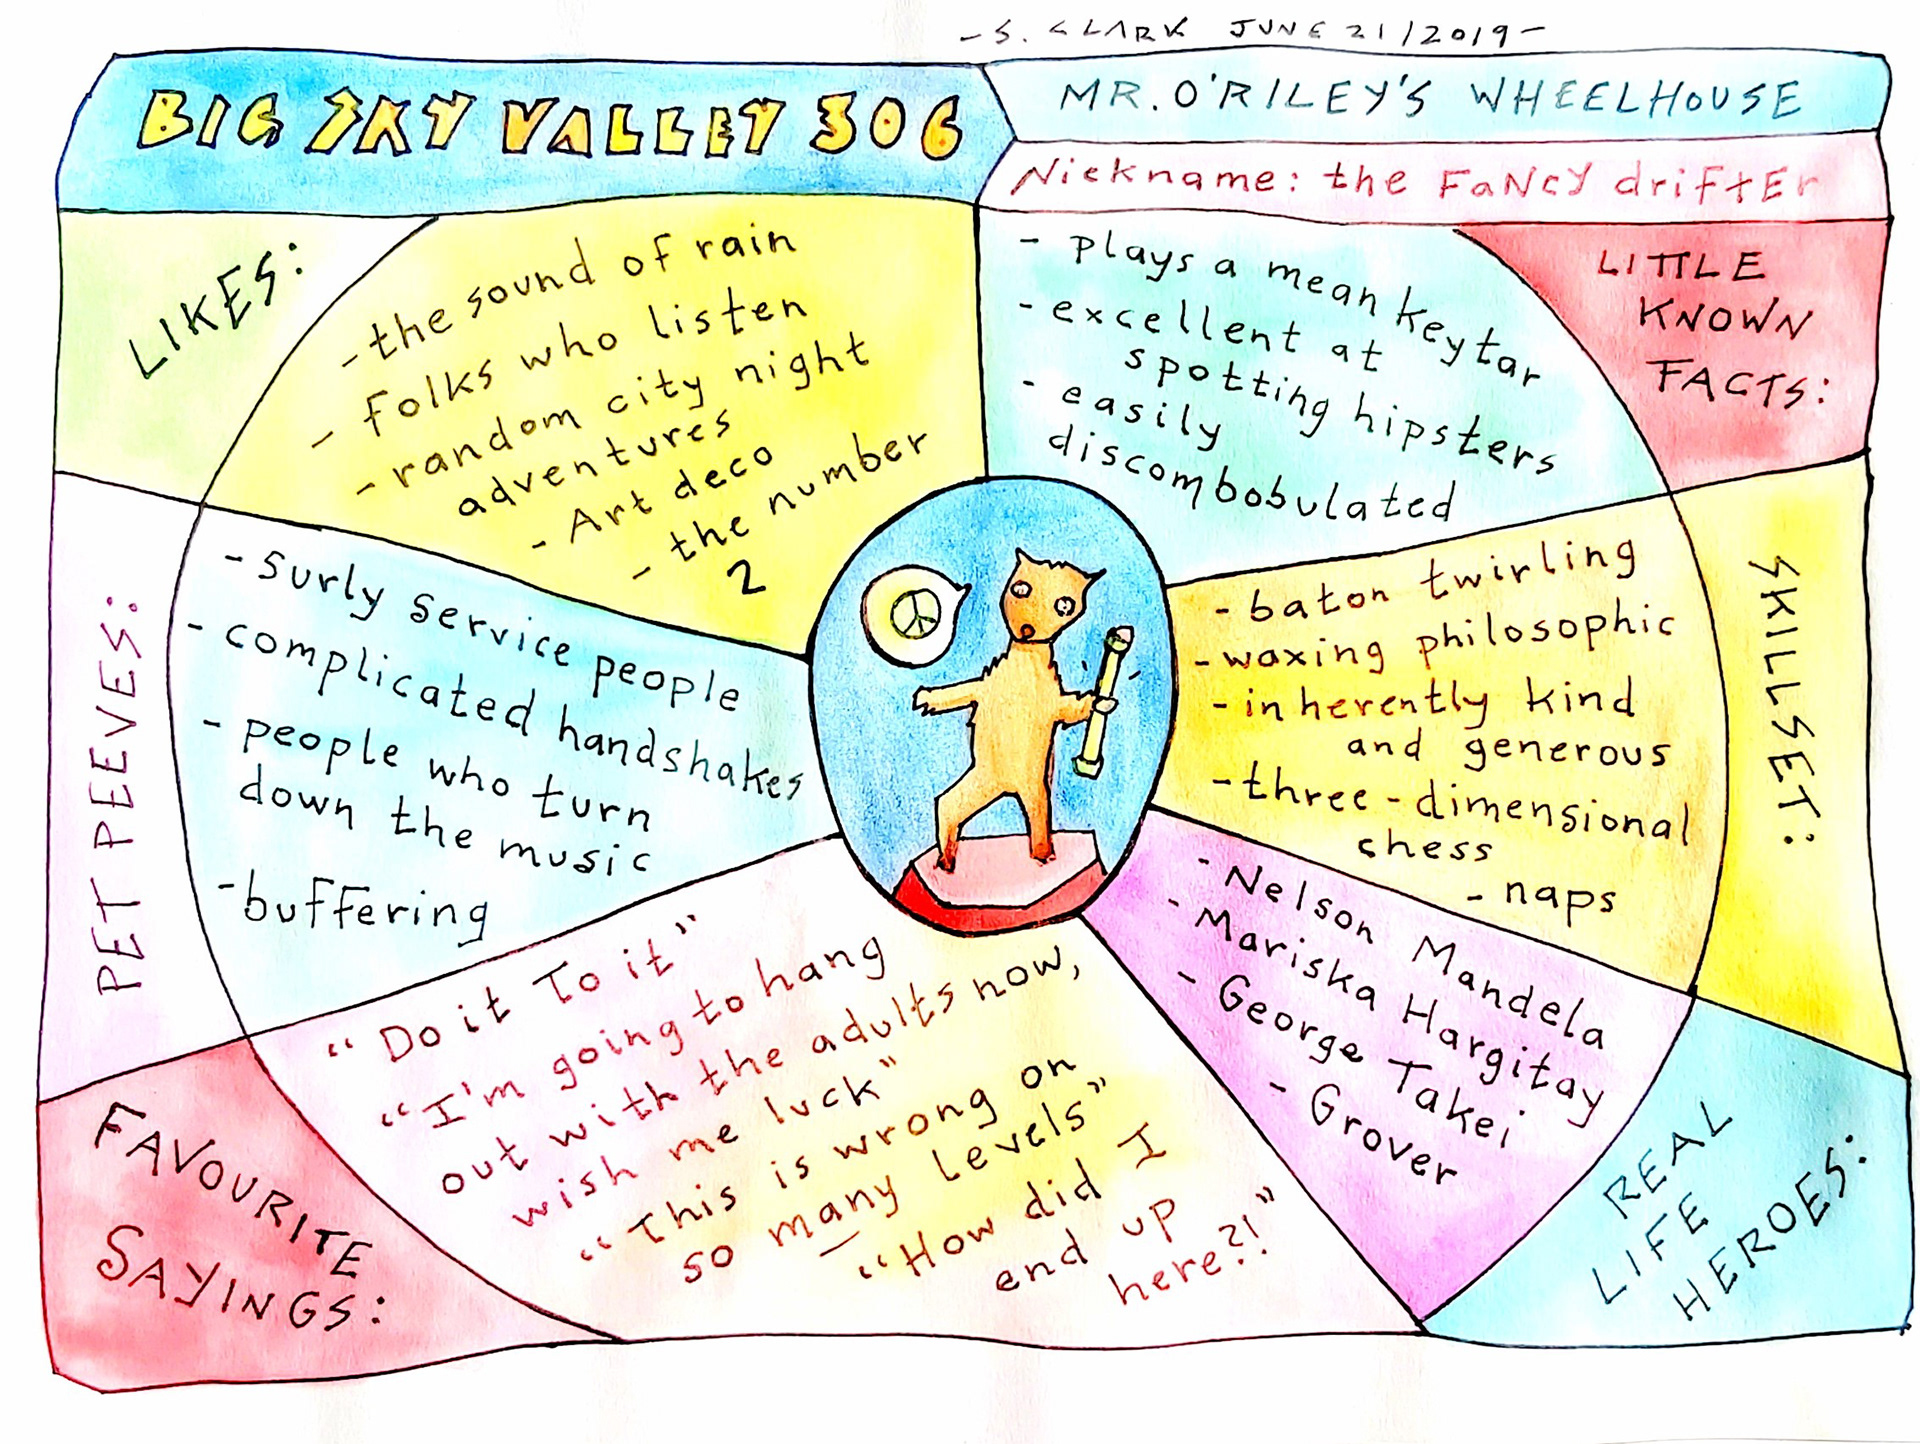 -S. CLARK JUNE 21/2019-
BIG SKY VALLEY 306
MR. O'RILEY'S WHEELHOUSE
Nickname: the FaNcY drifter
LIKES:
- the sound of rain
- folks who listen
- random city night
adventures
- Art deco
- the number
2
LITTLE
KNOWN
FACTS:
- plays a mean keytar
- excellent at
spotting hipsters
- easily
discombobulated
PET PEEVES:
- surly service people
- complicated handshakes
- people who turn
down the music
- buffering
SKILLSET:
- baton twirling
- waxing philosophic
- inherently kind
and generous
- three-dimensional
chess
- naps
FAVOURITE
SAYINGS:
"Do it To it"
"I'm going to hang
out with the adults now,
wish me luck"
"This is wrong on
so many levels"
"How did I
end up
here?!"
REAL
LIFE
HEROES:
- Nelson Mandela
- Mariska Hargitay
- George Takei
- Grover